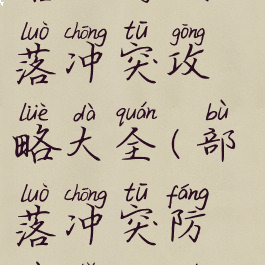 luò chōng tū gōng
落冲突攻
lüè dà quán bù
略大全(部
luò chōng tū fáng
落冲突防